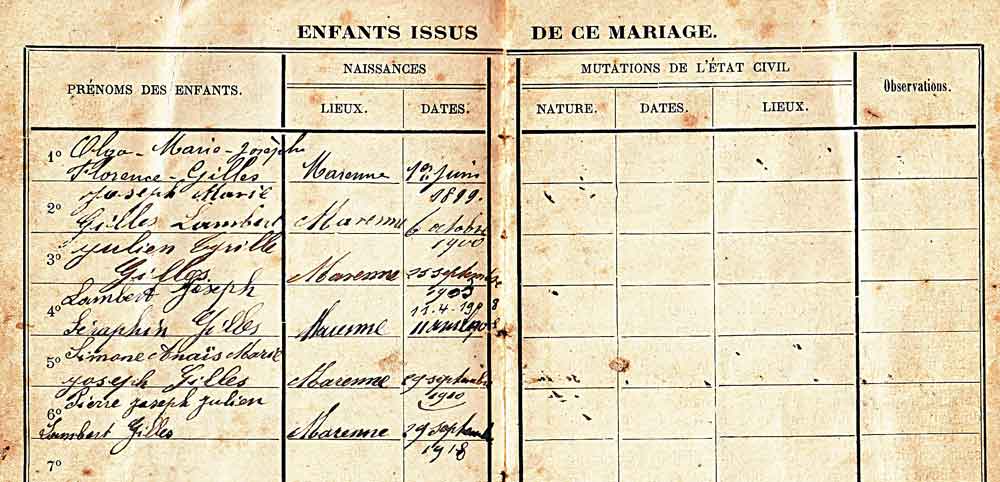 ENFANTS ISSUS DE CE MARIAGE.
PRÉNOMS DES ENFANTS.
NAISSANCES
LIEUX.
DATES.
MUTATIONS DE L'ÉTAT CIVIL
NATURE.
DATES.
LIEUX.
Observations.
1° Olga - Marie - Josèphe
Florence - Gilles Marenne 1er juin
1899.
Joseph Marie
2° Gilles Lambert Marenne 6 octobre
1900
Julien Cyrille
3° Gilles Marenne 25 septembre
Lambert Joseph
4° 11.4.1908
Séraphin Gilles Marenne 11 avril 1908
5° Simone Anaïs Marie
Joseph Gilles Marenne 29 septembre
1910
6° Pierre Joseph Julien
Lambert Gilles Marenne 29 septembre
1918
7°